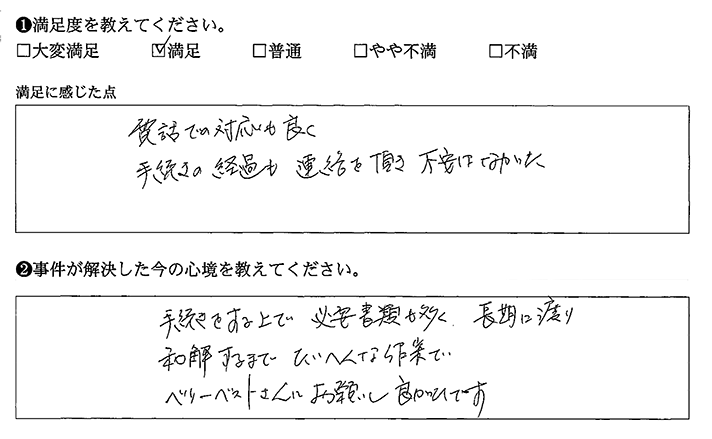 ❶満足度を教えてください。
□大変満足 ☑満足 □普通 □やや不満 □不満
満足に感じた点
電話での対応も良く
手続きの経過も 連絡を頂き 不安はなかった
❷事件が解決した今の心境を教えてください。
手続きをする上で 必要書類も多く、長期に渡り
和解するまで たいへんな作業で
ベリーベストさんに お願いし 良かったです